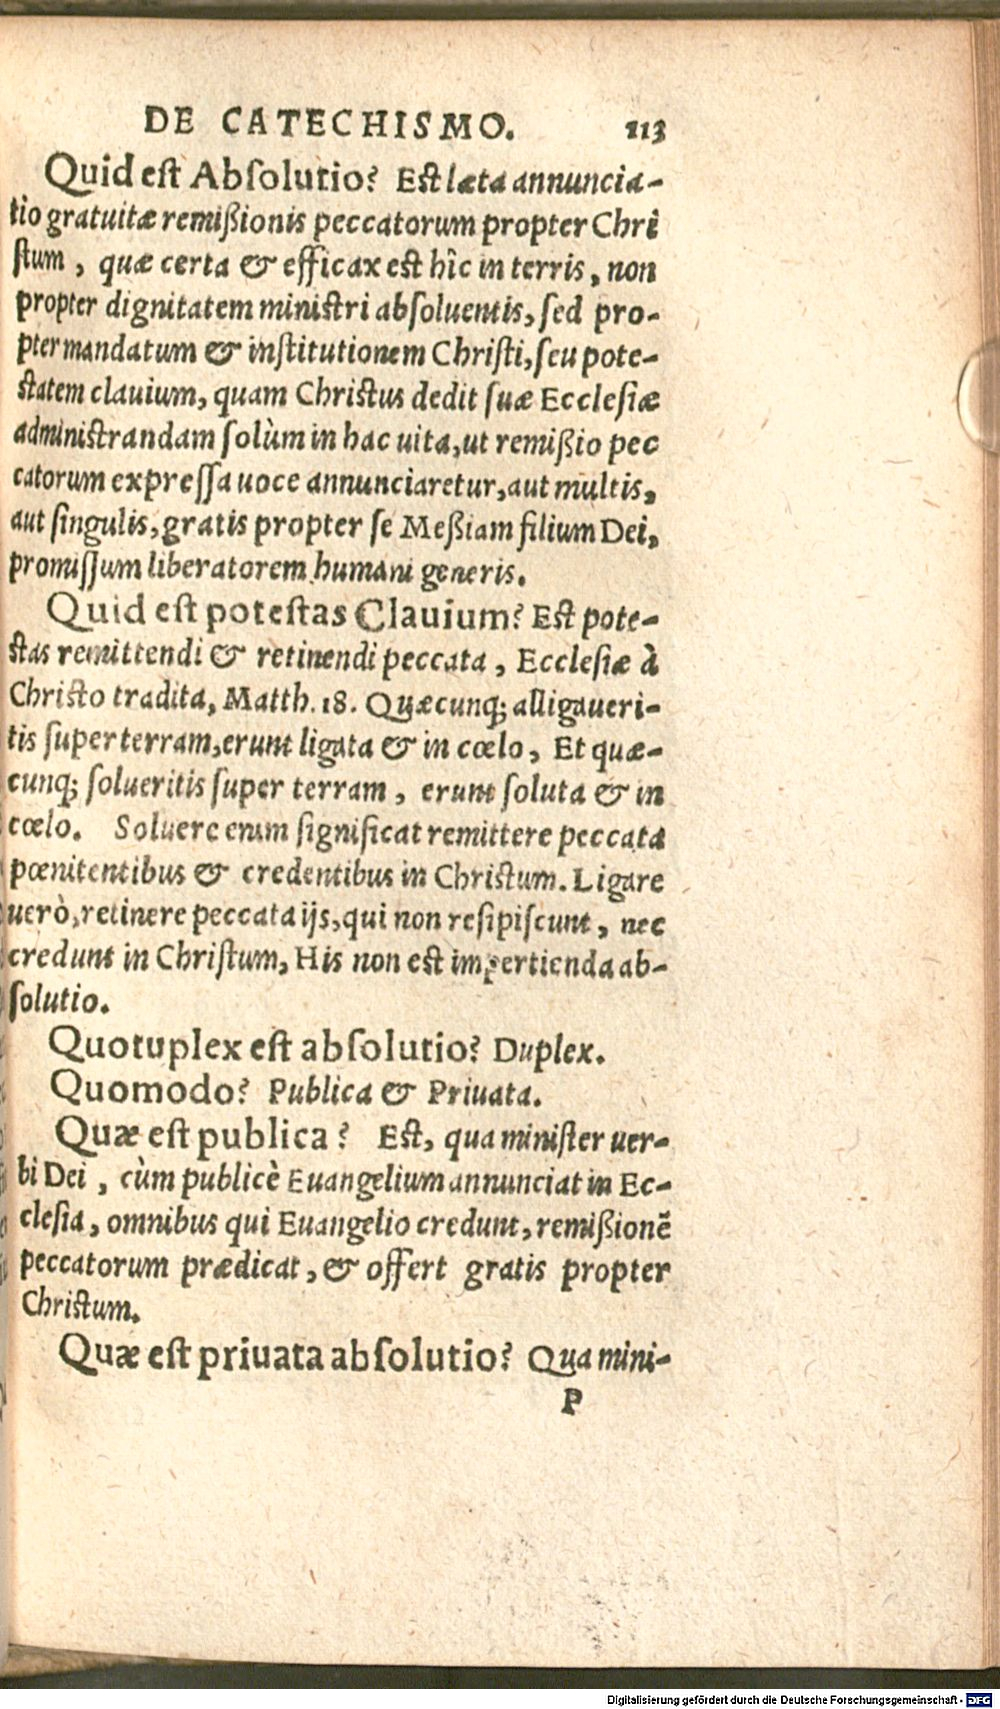 DE CATECHISMO. 113
Quid est Absolutio? Est læta annuncia-
tio gratuitæ remißionis peccatorum propter Chri
stum, quæ certa & efficax est hîc in terris, non
propter dignitatem ministri absoluentis, sed pro-
pter mandatum & institutionem Christi, seu pote-
statem clauium, quam Christus dedit suæ Ecclesiæ
administrandam solùm in hac uita, ut remißio pec
catorum expressa uoce annunciaretur, aut multis,
aut singulis, gratis propter se Meßiam filium Dei,
promissum liberatorem humani generis.
Quid est potestas Clauium? Est pote-
stas remittendi & retinendi peccata, Ecclesiæ à
Christo tradita, Matth. 18. Quæcunq; alligaueri-
tis super terram, erunt ligata & in cœlo, Et quæ-
cunq; solueritis super terram, erunt soluta & in
cœlo. Soluere enim significat remittere peccata
pœnitentibus & credentibus in Christum. Ligare
uerò, retinere peccata ijs, qui non resipiscunt, nec
credunt in Christum, His non est impertienda ab-
solutio.
Quotuplex est absolutio? Duplex.
Quomodo? Publica & Priuata.
Quæ est publica? Est, qua minister uer-
bi Dei, cùm publicè Euangelium annunciat in Ec-
clesia, omnibus qui Euangelio credunt, remißionẽ
peccatorum prædicat, & offert gratis propter
Christum.
Quæ est priuata absolutio? Qua mini-
P
Digitalisierung gefördert durch die Deutsche Forschungsgemeinschaft - DFG